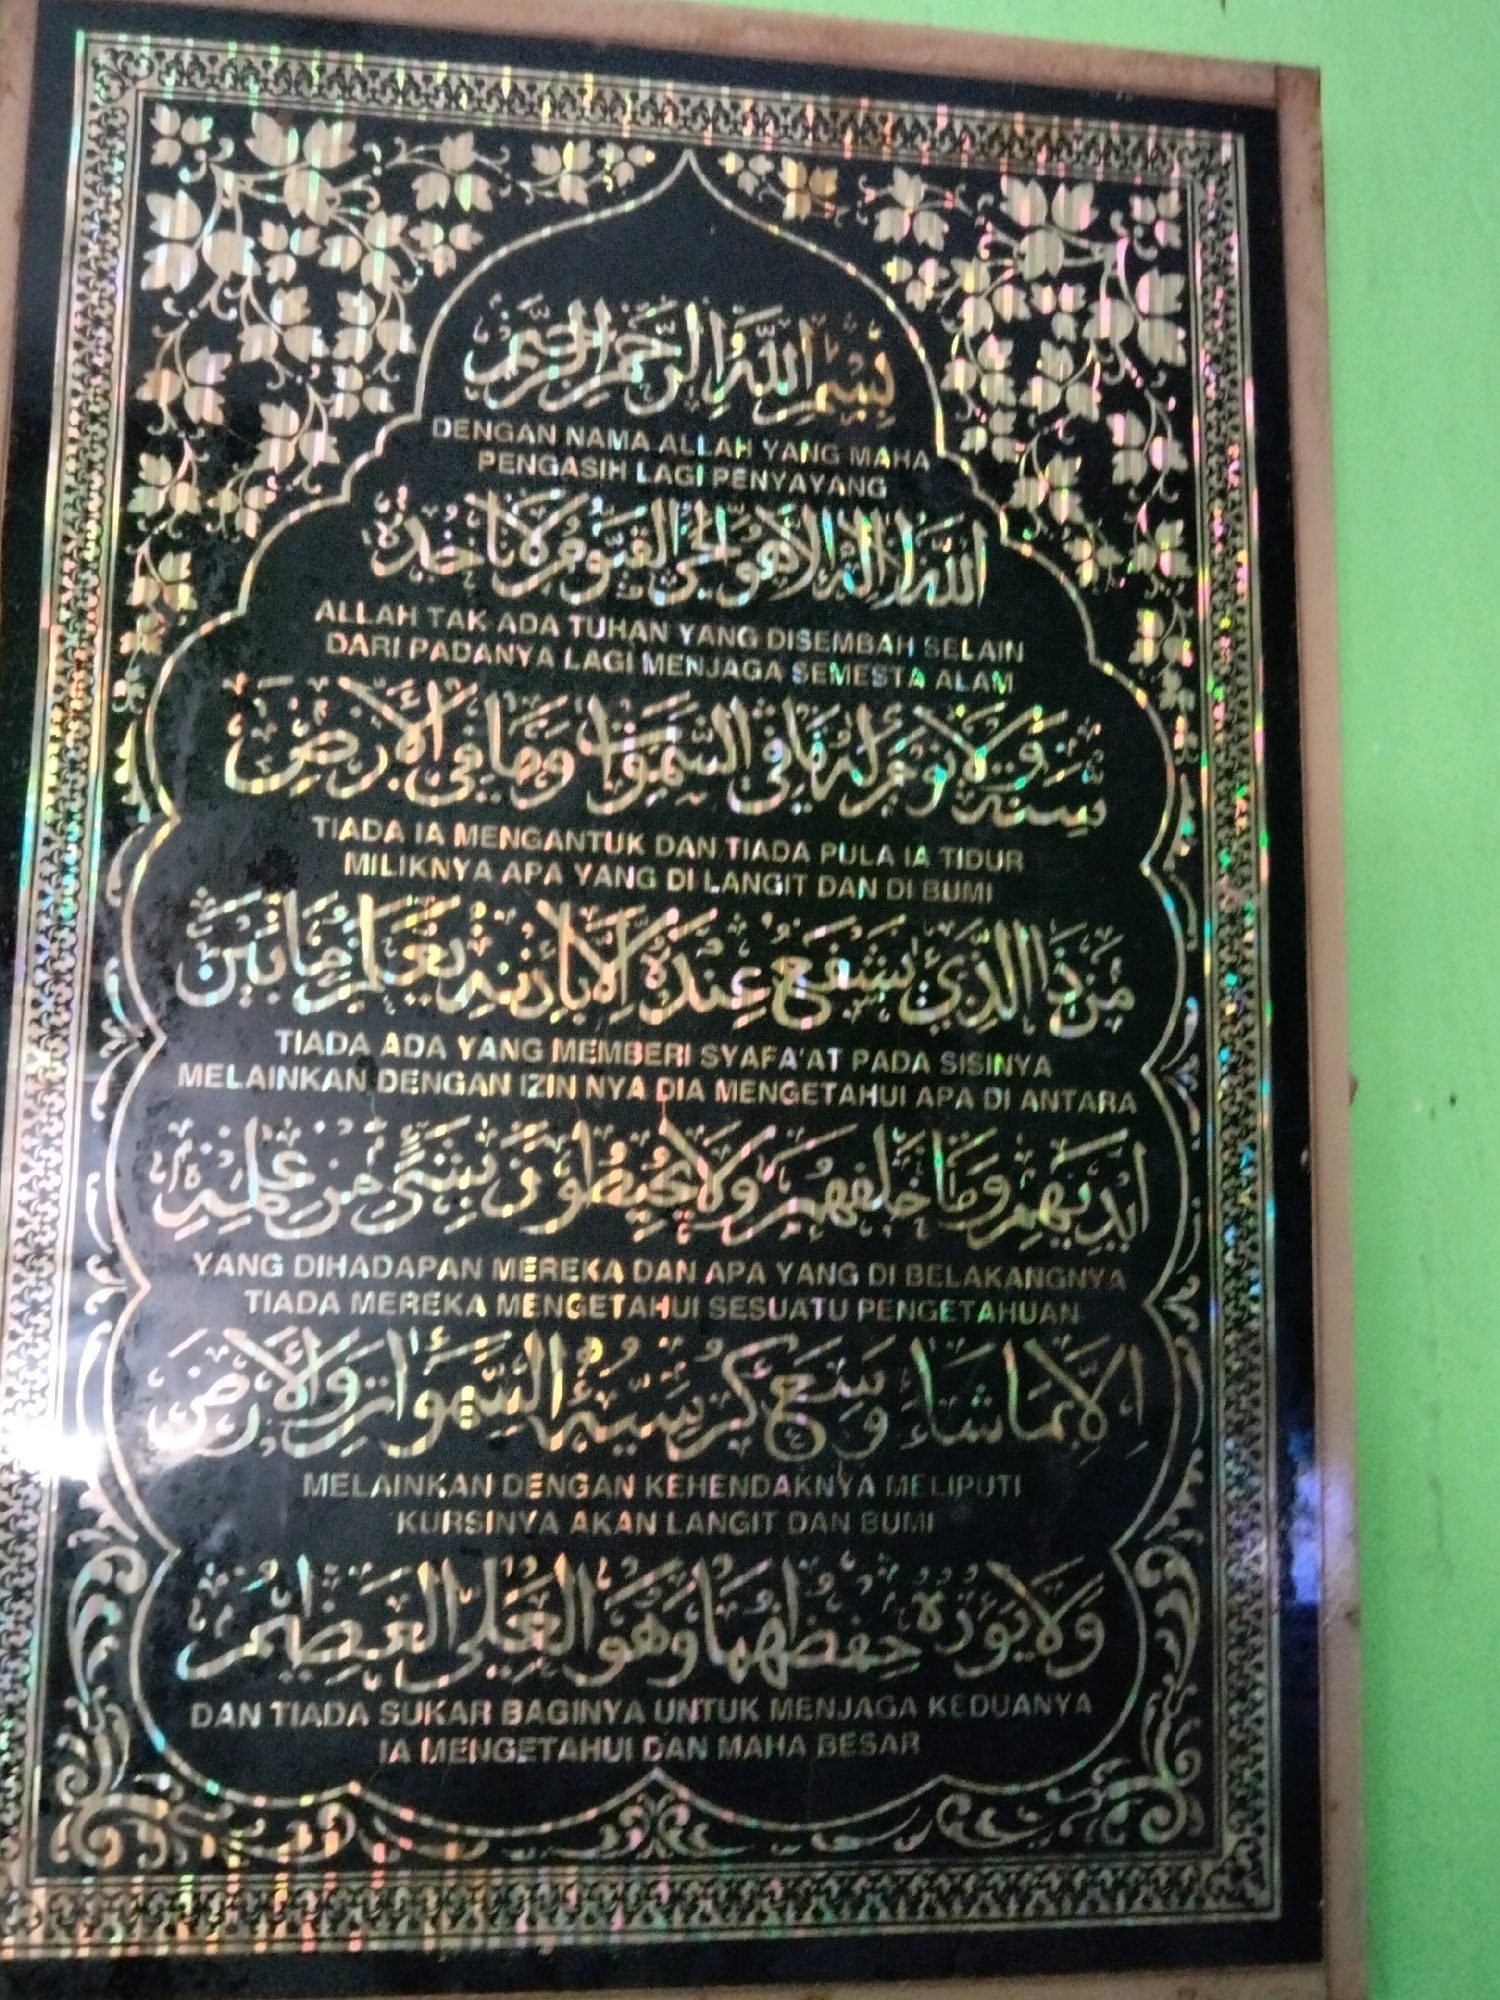 بِسْمِ اللَّهِ الرَّحْمَٰنِ الرَّحِيمِ
DENGAN NAMA ALLAH YANG MAHA
PENGASIH LAGI PENYAYANG
اللَّهُ لَا إِلَٰهَ إِلَّا هُوَ الْحَيُّ الْقَيُّومُ لَا تَأْخُذُهُ
ALLAH TAK ADA TUHAN YANG DISEMBAH SELAIN
DARI PADANYA LAGI MENJAGA SEMESTA ALAM
سِنَةٌ وَلَا نَوْمٌ لَهُ مَا فِي السَّمَٰوَاتِ وَمَا فِي الْأَرْضِ
TIADA IA MENGANTUK DAN TIADA PULA IA TIDUR
MILIKNYA APA YANG DI LANGIT DAN DI BUMI
مَنْ ذَا الَّذِي يَشْفَعُ عِنْدَهُ إِلَّا بِإِذْنِهِ يَعْلَمُ مَا بَيْنَ
TIADA ADA YANG MEMBERI SYAFA'AT PADA SISINYA
MELAINKAN DENGAN IZIN NYA DIA MENGETAHUI APA DI ANTARA
أَيْدِيهِمْ وَمَا خَلْفَهُمْ وَلَا يُحِيطُونَ بِشَيْءٍ مِنْ عِلْمِهِ
YANG DIHADAPAN MEREKA DAN APA YANG DI BELAKANGNYA
TIADA MEREKA MENGETAHUI SESUATU PENGETAHUAN
إِلَّا بِمَا شَاءَ وَسِعَ كُرْسِيُّهُ السَّمَٰوَاتِ وَالْأَرْضَ
MELAINKAN DENGAN KEHENDAKNYA MELIPUTI
KURSINYA AKAN LANGIT DAN BUMI
وَلَا يَئُودُهُ حِفْظُهُمَا وَهُوَ الْعَلِيُّ الْعَظِيمُ
DAN TIADA SUKAR BAGINYA UNTUK MENJAGA KEDUANYA
IA MENGETAHUI DAN MAHA BESAR